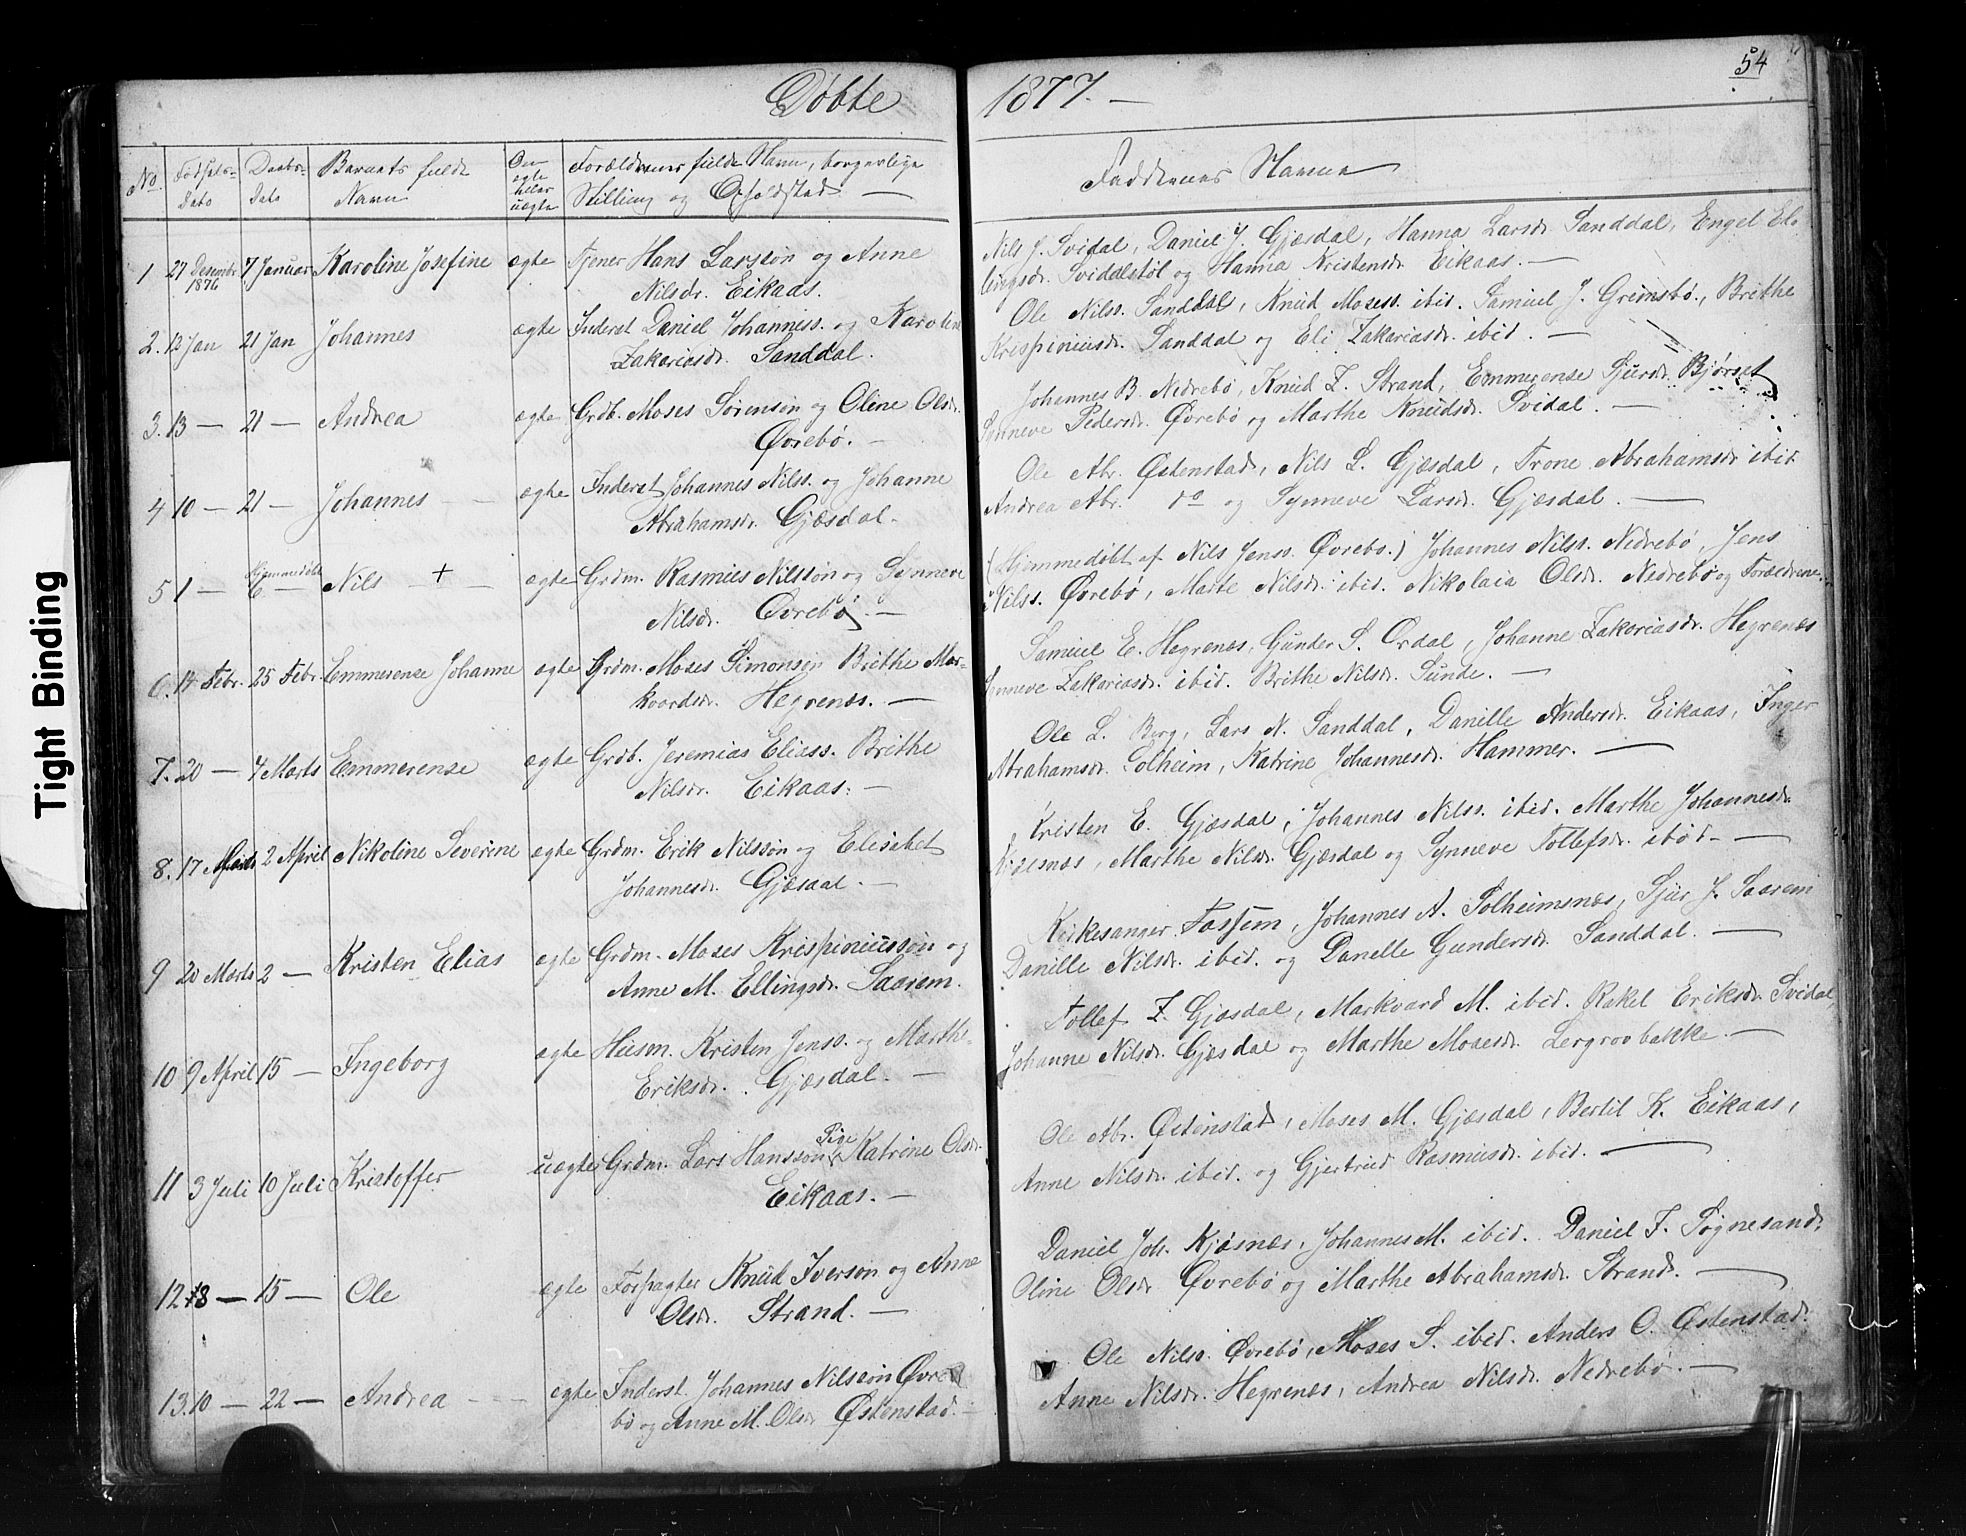 Døbte 1877. —
54
No. Fødsels- Dato Daabs- Dato Barnets fulde Navn Om ægte eller uægte Forældrenes fulde Navn, borgerlige Stilling og Opholdsted — Faddernes Navne
1 27 Desembr 1876 7 Januar Karoline Josefine ægte Tjener Hans Larsson og Anne
Nilsdr. Eikaas.
Nils J. Svidal, Daniel J. Gjæsdal, Hanna Larsdr. Sanddal, Engel El-
lingsdr. Svidalstøl og Hanna Kristensdr. Eikaas. —
2. 12 Jan 21 Jan Johannes ægte Inderst Daniel Johanness. og Karoline
Zakariasdr. Sanddal.
Ole Nilss. Sanddal, Knud Moses. ibid. Samuel J. Grimsbø, Brithe
Krispiniusdr. Sanddal og Eli Zakariasdr. ibid. —
3. 13 — 21 — Andrea ægte Grdb. Moses Sørenson og Oline Olsdr.
Øvrebø. —
Johannes B. Nedrebø, Knud Z. Strand, Emmerense Sjursdr. Bjørset
Synneve Pedersdr. Øvrebø og Marthe Knudsdr. Svidal. —
4 10 — 21 — Johannes — ægte Inderst Johannes Nilss. og Johanne
Abrahamsdr. Gjæsdal.
Ole Abr. Østenstad, Nils L. Gjæsdal, Trone Abrahamsdr. ibid.
Andrea Abr. do og Synneve Larsdr. Gjæsdal. —
5 1 — Hjemmedøbt 6 — Nils — + — ægte Grdm. Rasmus Nilsson og Synneve
Nilsdr. Øvrebø. —
(Hjemmedøbt af Nils Jenss. Øvrebo.) Johannes Nilss. Nedrebø, Jens
Nilss. Øvrebø, Marte Nilsdr. ibid. Nikolaia Olsdr. Nedrebø og Forældrene.
6. 14 Febr. 25 Febr. Emmerense Johanne ægte Grdm. Moses Simonson Brithe Mar-
kvardsdr. Hegrenæs. —
Samuel E. Hegrenæs, Gunder S. Ordal, Johanne Zakariasdr. Hegrenæs
Synneve Zakariasdr. ibid. Brithe Nilsdr. Sunde. —
7. 20 — 4 Marts Emmerense ægte Grdb. Jeremias Eliass. Brithe
Nilsdr. Eikaas. —
Ole L. Berg, Lars N. Sanddal, Danille Andersdr. Eikaas, Inger
Abrahamsdr. Solheim, Katrine Johannesdr. Hammer. —
8. 17 Marts 2 April Nikoline Severine ægte Grdm. Erik Nilsson og Elisabet
Johannesdr. Gjæsdal. —
Kristen E. Gjæsdal, Johannes Nilss. ibid. Marthe Johannesdr.
Kjøsnæs, Marthe Nilsdr. Gjæsdal og Synneve Tollefsdr. ibid — —
9 20 Marts 2 — Kristen Elias ægte Grdm. Moses Krispiniusson og
Anne M. Ellingsdr. Saarem.
Kirkesanger Fossum, Johannes A. Solheimsnæs, Sjur J. Saarem
Danille Nilsdr. ibid. og Danelle Gundersdr. Sanddal. —
10 9 April 15 — Ingeborg ægte Husm. Kristen Jenss. og Marthe
Eriksdr. Gjæsdal. —
Tollef Z. Gjæsdal, Markvard M. ibid. Rakel Eriksdr. Svidal,
Johanne Nilsdr. Gjæsdal og Marthe Mosesdr. Lergrovbakke. —
11 3 Juli 10 Juli Kristoffer uægte Grdm. Lars Hansson, Pige Katrine Olsdr.
Eikaas. —
Ole Abr. Østenstad, Moses M. Gjæsdal, Bertil K. Eikaas,
Anne Nilsdr. ibid. og Gjertrud Rasmusdr. ibid. —
12 18 — 15 — Ole ægte Forpagter Knud Iverson og Anne
Olsdr. Strand. —
Daniel Joh. Kjøsnæs, Johannes M. ibid. Daniel T. Søgnesand,
Oline Olsdr. Øvrebø og Marthe Abrahamsdr. Strand. —
13. 10 — 22 — Andrea — ægte Inderst. Johannes Nilsson Øvre-
bø og Anne M. Olsdr. Østenstad. —
Ole Nilss. Øvrebø, Moses S. ibid. Anders O. Østenstad.
Anne Nilsdr. Hegrenæs, Andrea Nilsdr. Nedrebø. —
Tight Binding